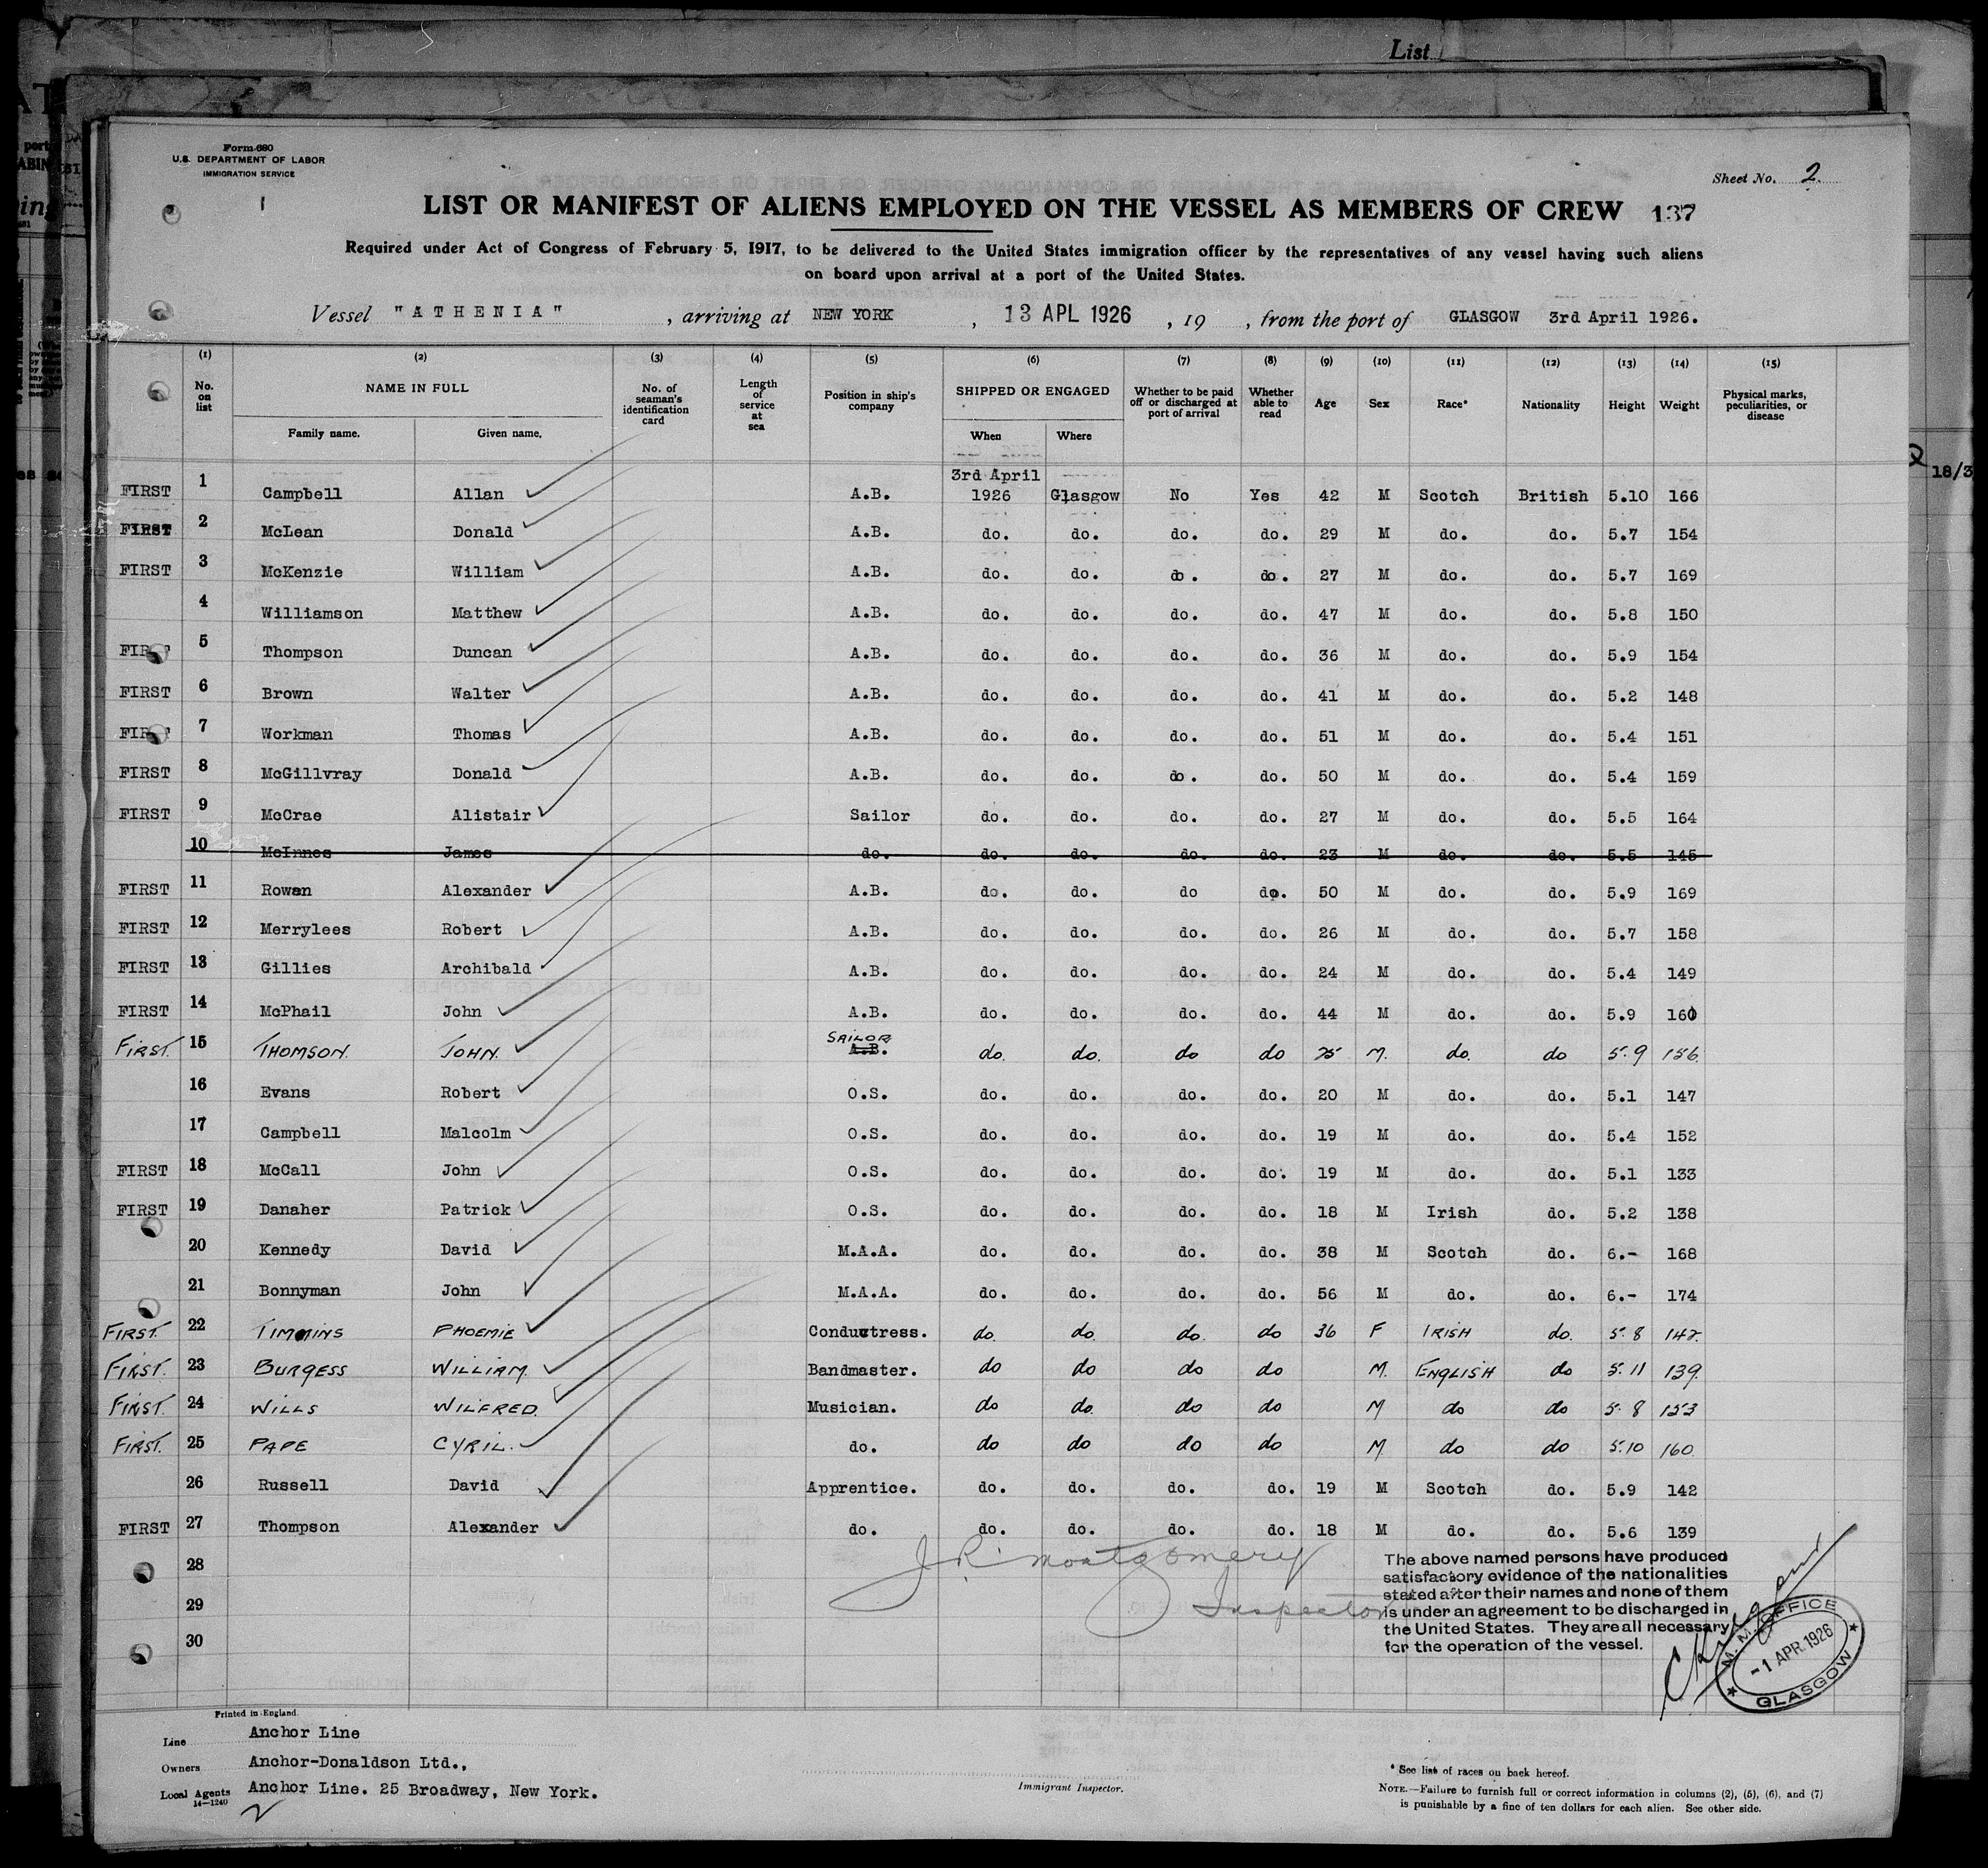 List
Form 680
U.S. DEPARTMENT OF LABOR
IMMIGRATION SERVICE
Sheet No. 2.
LIST OR MANIFEST OF ALIENS EMPLOYED ON THE VESSEL AS MEMBERS OF CREW 137
Required under Act of Congress of February 5, 1917, to be delivered to the United States immigration officer by the representatives of any vessel having such aliens
on board upon arrival at a port of the United States.
Vessel "ATHENIA", arriving at NEW YORK, 13 APL 1926, 19 , from the port of GLASGOW 3rd April 1926.
(1) (2) (3) (4) (5) (6) (7) (8) (9) (10) (11) (12) (13) (14) (15)
No. on list NAME IN FULL No. of seaman's identification card Length of service at sea Position in ship's company SHIPPED OR ENGAGED Whether to be paid off or discharged at port of arrival Whether able to read Age Sex Race* Nationality Height Weight Physical marks, peculiarities, or disease
Family name. Given name. When Where
FIRST 1 Campbell Allan A.B. 3rd April 1926 Glasgow No Yes 42 M Scotch British 5.10 166
FIRST 2 McLean Donald A.B. do. do. do. do. 29 M do. do. 5.7 154
FIRST 3 McKenzie William A.B. do. do. do. do. 27 M do. do. 5.7 169
4 Williamson Matthew A.B. do. do. do. do. 47 M do. do. 5.8 150
FIRST 5 Thompson Duncan A.B. do. do. do. do. 36 M do. do. 5.9 154
FIRST 6 Brown Walter A.B. do. do. do. do. 41 M do. do. 5.2 148
FIRST 7 Workman Thomas A.B. do. do. do. do. 51 M do. do. 5.4 151
FIRST 8 McGillvray Donald A.B. do. do. do. do. 50 M do. do. 5.4 159
FIRST 9 McCrae Alistair Sailor do. do. do. do. 27 M do. do. 5.5 164
10 McInnes James do. do. do. do. do. 23 M do. do. 5.5 145
FIRST 11 Rowan Alexander A.B. do. do. do do. 50 M do. do. 5.9 169
FIRST 12 Merrylees Robert A.B. do. do. do. do. 26 M do. do. 5.7 158
FIRST 13 Gillies Archibald A.B. do. do. do. do. 24 M do. do. 5.4 149
FIRST 14 McPhail John A.B. do. do. do. do. 44 M do. do. 5.9 160
FIRST. 15 THOMSON. JOHN. SAILOR A.B. do. do. do do 25 M. do. do 5.9 156.
16 Evans Robert O.S. do. do. do. do. 20 M do. do. 5.1 147
17 Campbell Malcolm O.S. do. do. do. do. 19 M do. do. 5.4 152
FIRST 18 McCall John O.S. do. do. do. do. 19 M do. do. 5.1 133
FIRST 19 Danaher Patrick O.S. do. do. do. do. 18 M Irish do. 5.2 138
20 Kennedy David M.A.A. do. do. do. do. 38 M Scotch do. 6.- 168
21 Bonnyman John M.A.A. do. do. do. do. 56 M do. do. 6.- 174
FIRST. 22 TIMMINS PHOEMIE Conductress. do. do. do. do 36 F IRISH do. 5.8 142.
FIRST. 23 BURGESS WILLIAM. Bandmaster. do do do do M. ENGLISH do 5.11 139.
FIRST. 24 WILLS WILFRED. Musician. do do. do do M do do 5.8 153
FIRST. 25 PAPE CYRIL. do. do do do do M. do do 5.10 160
26 Russell David Apprentice. do. do. do. do. 19 M Scotch do. 5.9 142
FIRST 27 Thompson Alexander do. do. do. do. do. 18 M do. do. 5.6 139
28
29
30
J.R. Montgomery
Inspector
The above named persons have produced
satisfactory evidence of the nationalities
stated after their names and none of them
is under an agreement to be discharged in
the United States. They are all necessary
for the operation of the vessel.
M. M. OFFICE
-1 APR.1926
GLASGOW
Printed in England.
Line Anchor Line
Owners Anchor-Donaldson Ltd.,
Local Agents Anchor Line. 25 Broadway, New York.
14-1240
Immigrant Inspector.
* See list of races on back hereof.
NOTE.—Failure to furnish full or correct information in columns (2), (5), (6), and (7)
is punishable by a fine of ten dollars for each alien. See other side.
18/3